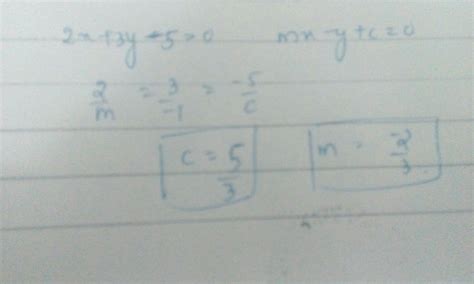 2x+3y-5=0 mx-y+c=0
2/m = 3/-1 = -5/c
c = 5/3 m = -2/3